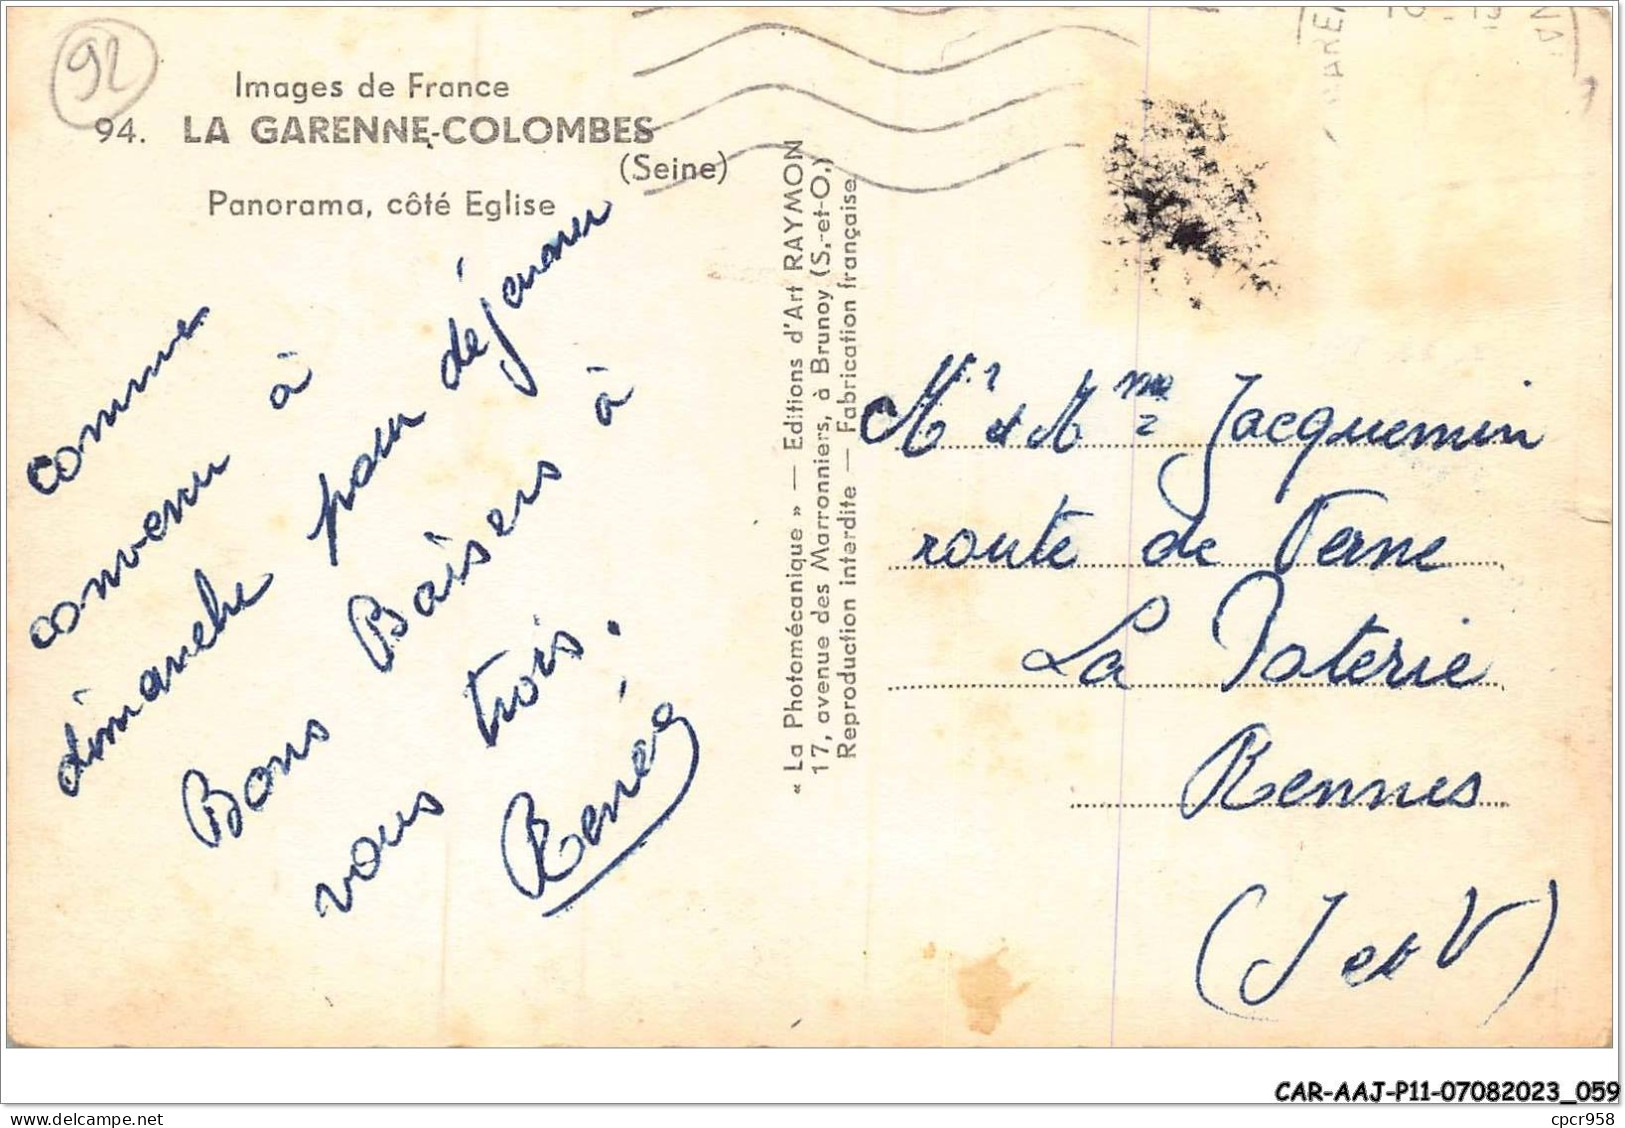 92
Images de France
94. LA GARENNE-COLOMBES
(Seine)
Panorama, côté Eglise
comme
convenu à
dimanche pour déjeuner
Bons Baisers à
vous trois.
Renée
« La Photomécanique » — Editions d'Art RAYMON
17, avenue des Marronniers, à Brunoy (S.-et-O.)
Reproduction interdite — Fabrication française
Mr et Mme Jacquemin
route de Verne
La Poterie
Rennes
(I et V)
CAR-AAJ-P11-07082023_059
cpcr958